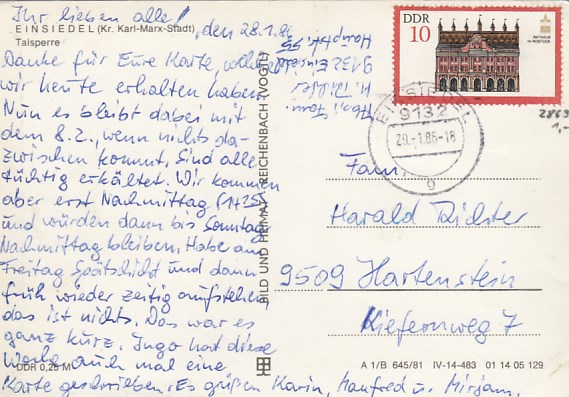 Ihr lieben alle! den 28.1.86
EINSIEDEL (Kr. Karl-Marx-Stadt)
Talsperre
Danke für Eure Karte, welche
wir heute erhalten haben.
Nun es bleibt dabei mit
dem 8.2., wenn nichts da-
zwischen kommt. Sind alle
tüchtig erkältet. Wir kommen
aber erst Nachmittag (1425)
und würden dann bis Sonntag
Nachmittag bleiben. Habe am
Freitag Spätschicht und dann
früh wieder zeitig aufstehen,
das ist nichts. Das war es
ganz kurz. Ingo hat diese
Woche auch mal eine
Karte geschrieben. Es grüßen Karin, Manfred u. Mirjam.
DDR 0,25 M
BILD UND HEIMAT REICHENBACH (VOGTL)
Abs. Fam.
M. Richter
9132 Einsiedel
Hauptstr.
55
DDR
10
RATHAUS
IN ROSTOCK
EINSIEDEL
9132
29.-1.86-18
g
2869
1,-
Fam.
Harald Richter
9509 Hartenstein
Kiefernweg 7
A 1/B 645/81 IV-14-483 01 14 05 129